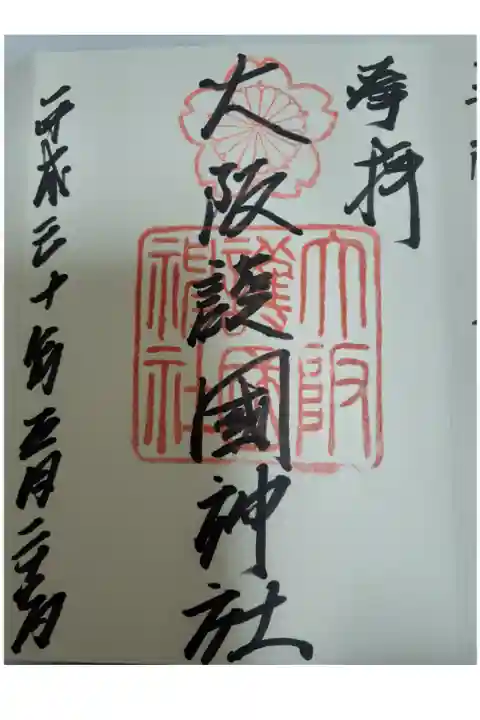 奉拝
大阪護國神社
大阪
護國
神社
平成三十年五月二十日